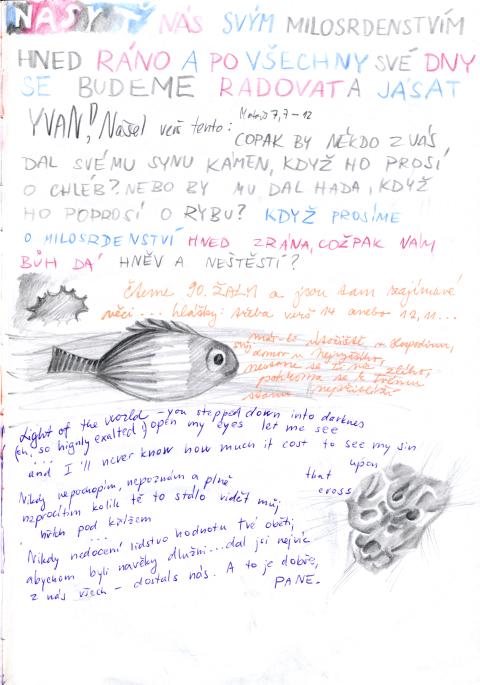 NASYŤ NÁS SVÝM MILOSRDENSTVÍM
HNED RÁNO A PO VŠECHNY SVÉ DNY
SE BUDEME RADOVAT A JÁSAT
YVAN! Našel verš tento: Matouš 7,7-12
COPAK BY NĚKDO Z VÁS
DAL SVÉMU SYNU KÁMEN, KDYŽ HO PROSÍ
O CHLÉB? NEBO BY MU DAL HADA, KDYŽ
HO POPROSÍ O RYBU? KDYŽ PROSÍME
O MILOSRDENSTVÍ HNED ZRÁNA, COŽPAK NÁM
BŮH DÁ HNĚV A NEŠTĚSTÍ?
Čteme 90. ŽALM a jsou tam zajímavé
věci... hlášky: třeba verš 14 anebo 12, 11...
máš-li útočiště v Hospodinu,
svůj domov u Nejvyššího,
nestane se ti nic zlého,
pohroma se k tvému
stanu nepřiblíží
Light of the world - you stepped down into darkness
(oh, so highly exalted) open my eyes let me see
... and I'll never know how much it cost to see my sin
upon
that
cross
Nikdy nepochopím, nepoznám a plně
nezprocítím kolik tě to stálo vidět můj
hřích pod křížem
...
Nikdy nedocení lidstvo hodnotu tvé oběti,
abychom byli navěky dlužni... dal jsi nejvíc
z nás všech - dostals nás. A to je dobře,
PANE.